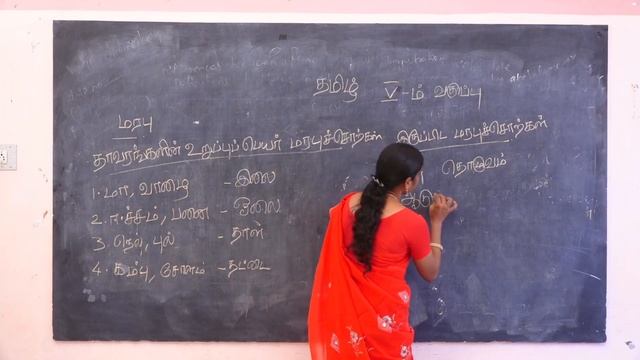 தமிழ் V-ம் வகுப்பு
மரபு
தாவரங்களின் உறுப்புப் பெயர் மரபுச்சொற்கள்
1. மா, வாழை - இலை
2. ஈச்சம், பனை - ஓலை
3. நெல், புல் - தாள்
4. கம்பு, சோளம் - தட்டை
இருப்பிட மரபுச்சொற்கள்
தொழுவம்
ஆடு